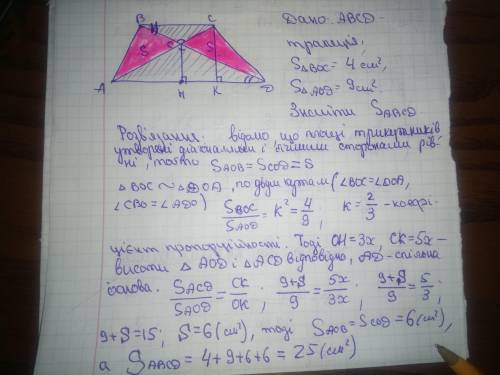 B C
O
S S
A H K D
Дано: ABCD-
трапеція,
S△BOC = 4 см²,
S△AOD = 9 см².
Знайти S ABCD
Розв'язання: відомо, що площі трикутників
утворені діагоналями і бічними сторонами рів-
ні, тобто S AOB = S COD = S
△ BOC ~ △ DOA, по двум кутам (∠BOC=∠DOA,
∠CBO = ∠ADO) S BOC / S AOD = K² = 4/9, K = 2/3 - коефі-
цієнт пропорційності. Тоді OH=3x, CK=5x -
висоти △ AOD і △ ACD відповідно, AD - спільна
основа. S ACD / S AOD = CK / OH; 9+S / 9 = 5x / 3x; 9+S / 9 = 5/3;
9+S=15; S=6 (см²), тоді S AOB = S COD = 6 (см²),
а S ABCD = 4+9+6+6 = 25 (см²)